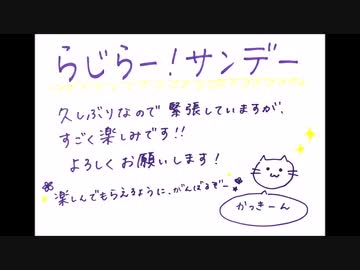 らじらー!サンデー
久しぶりなので緊張していますが、
すごく楽しみです!!
よろしくお願いします!
楽しんでもらえるように、がんばるぞー
かっきーん